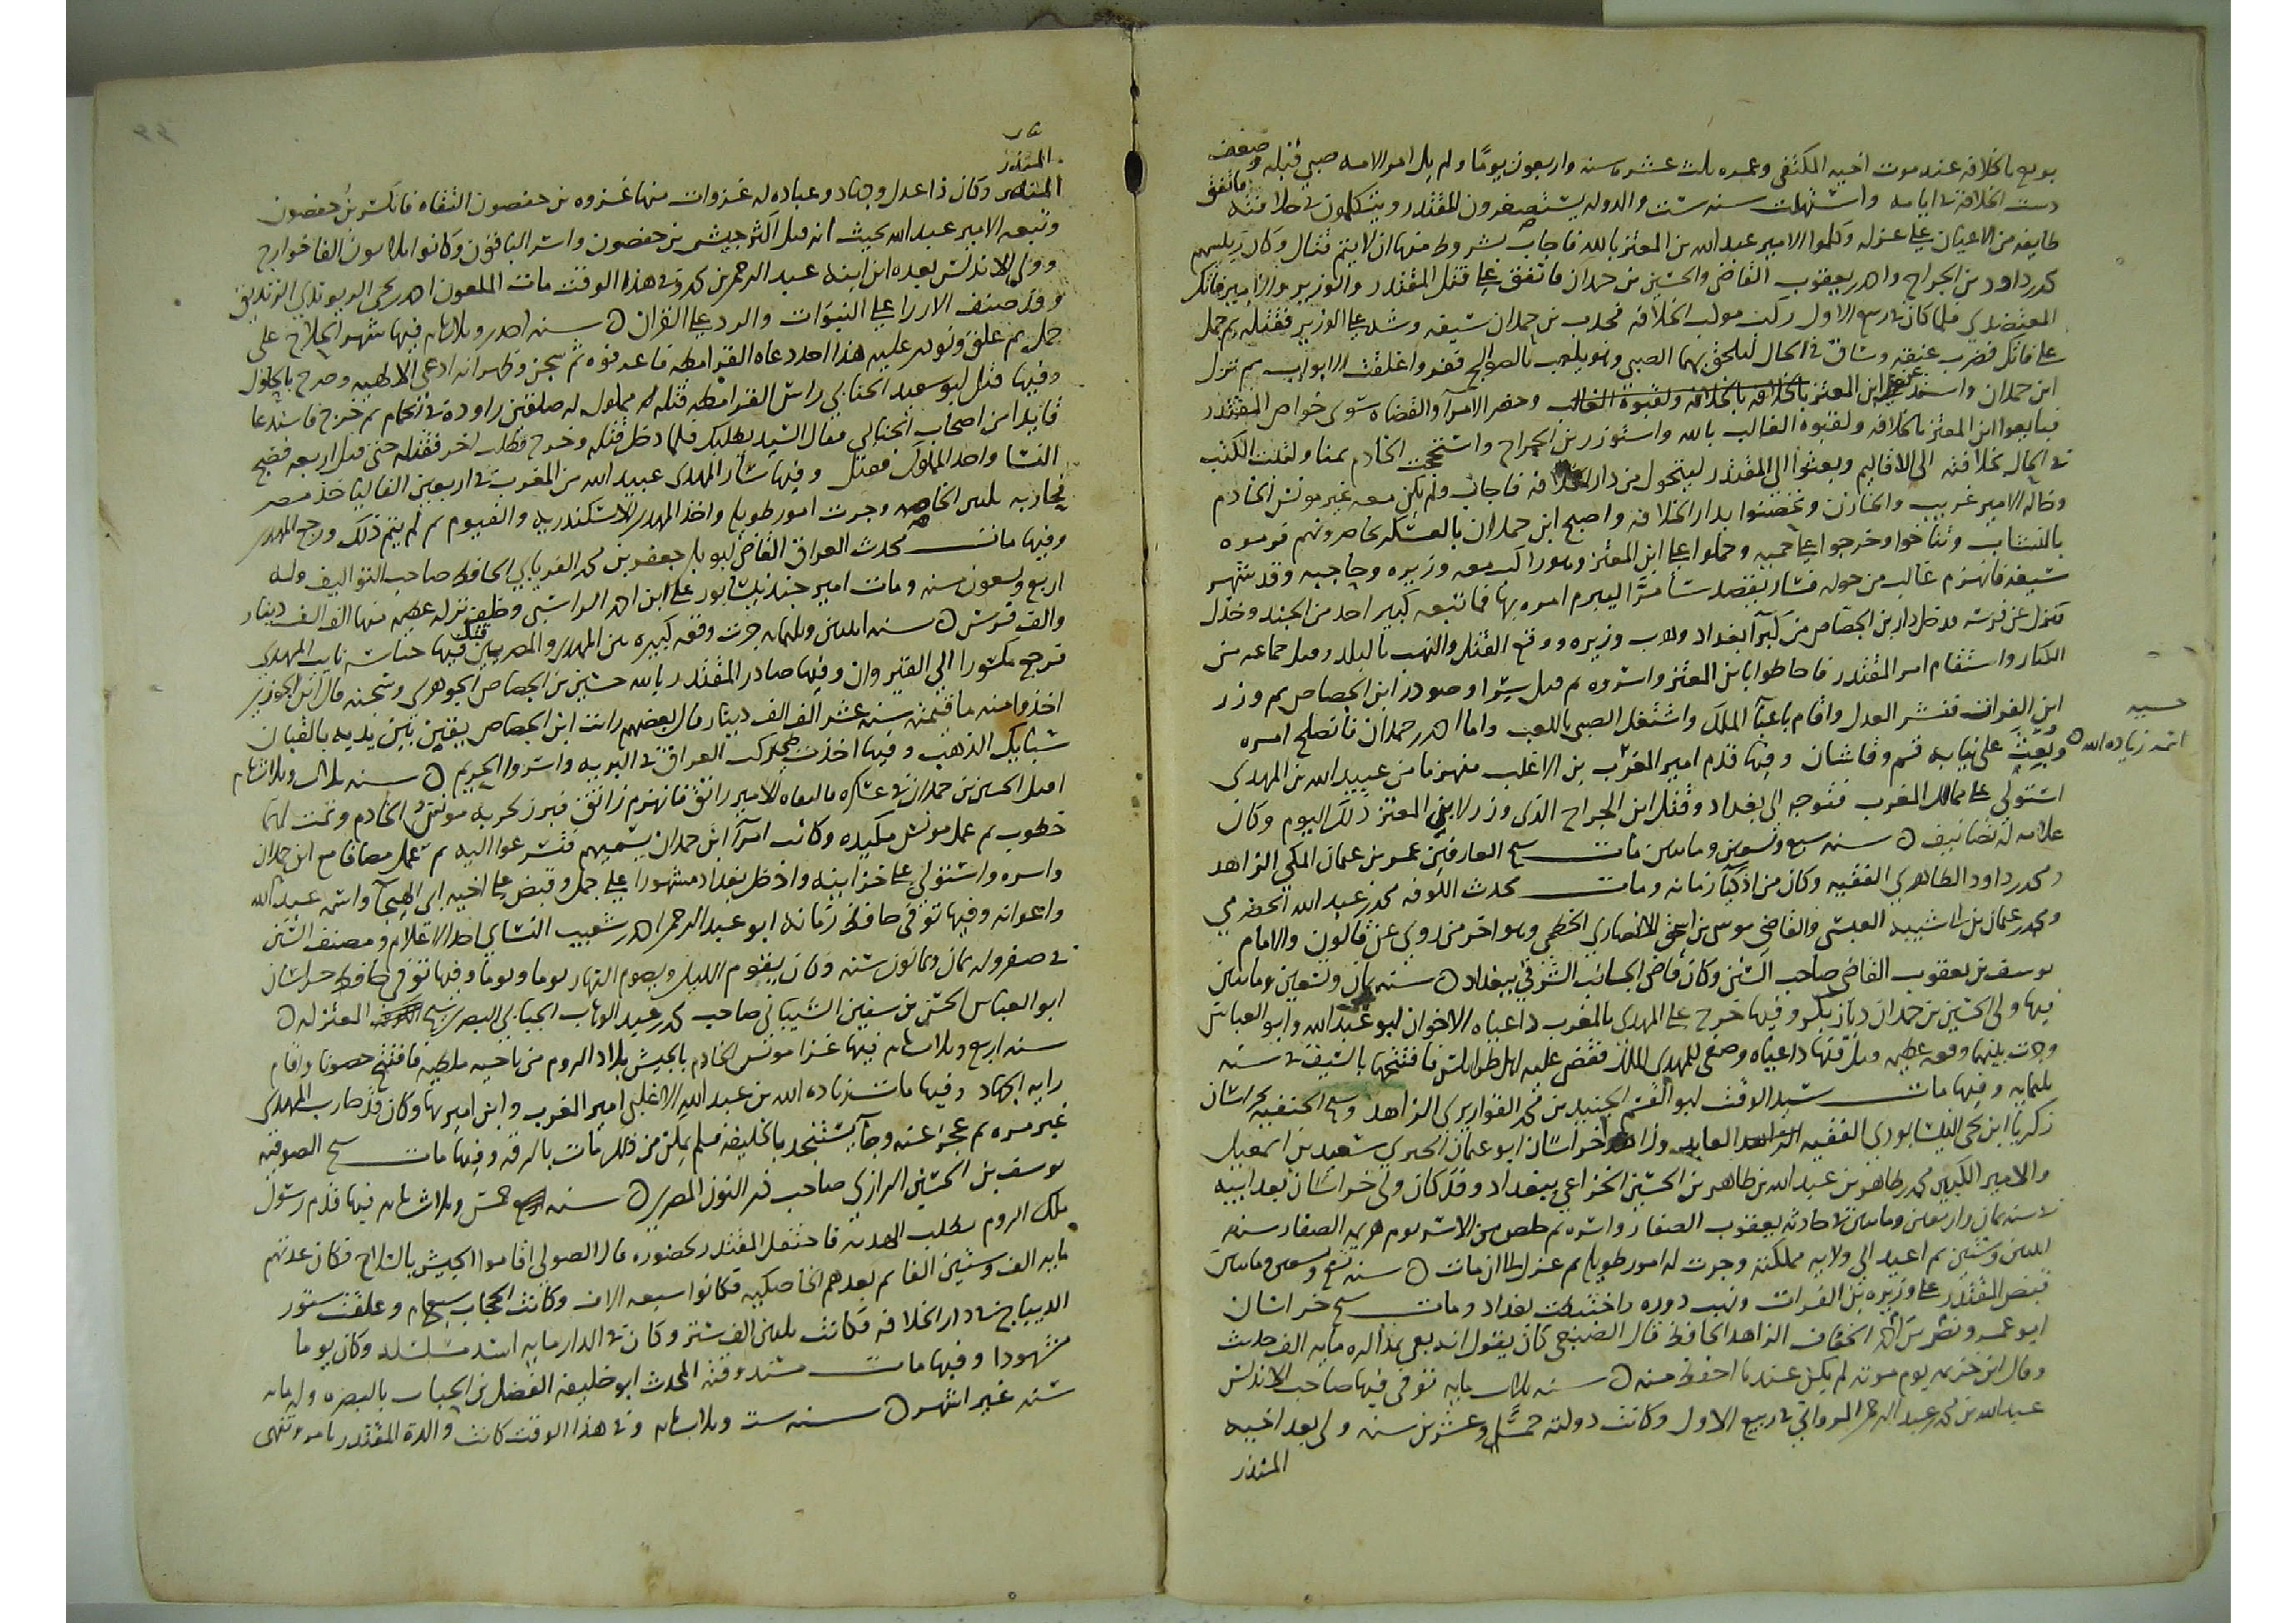 بويع بالخلافة عند موت اخيه المكتفي وعمره ثلث عشره سنه واربعون يومًا ولم يل امر الامه صبي قبله وضعف
دست الخلافة في ايامه واستهلت سنه ست والدوله يستصغرون المقتدر ويتكلمون في خلافته فاتفق
طايفه من الاعيان على عزله وكلموا الامير عبد الله بن المعتز بالله فاجاب بشروط منها ان لا يتم قتال وكان رئيسهم
محمد بن داود بن الجراح واحمد بن يعقوب القاضي والحسين بن حمدان فاتفق على قتل المقتدر والوزير والامير فاتك
المعتضدي فلما كان في ربيع الاول ركب موكب الخلافه فجذب بن حمدان سيفه وشد على الوزير فقتله ثم حمل
على فاتك فضرب عنقه وساق في الحال ليلحق بهما الصبي وهو يلعب بالصوالجه ففر واغلقت الابواب ثم نزل
ابن حمدان واستدعى ابن المعتز بالخلافه ولقبوه الغالب وحضر الامرا والقضاه سوى خواص المقتدر
فبايعوا ابن المعتز بالخلافه ولقبوه الغالب بالله واستوزر بن الجراح واستحجب الخادم يمنا ونفذت الكتب
في الحال بخلافته الى الاقاليم وبعثوا الى المقتدر ليتحول من دار الخلافه فاجاب ولم يكن معه غير مونس الخادم
وخاله الامير غريب والخازن وتحصنوا بدار الخلافه واصبح ابن حمدان بالعسكر يحاصرونهم فرموه
بالنشاب وتناخوا وخرجوا على حميه وحملوا على ابن المعتز وهو راكب معه وزيره وحاجبه وقد شهر
سيفه فانهزم غالب من حوله فسار يقصد سامرّا ليبرم امره بها فما تبعه كبير احد من الجند وخذل
فنزل عن فرسه ودخل دار بن الجصاص من كبرآ بغداد وهرب وزيره ووقع القتل والنهب بالبلد وقتل جماعه من
الكبار واستقام امر المقتدر فاحاطوا بابن المعتز واسروه ثم قتل سرا وصودر ابن الجصاص ثم وزر
ابن الفرات فنشر العدل واقام باعبآ الملك واشتغل الصبي باللعب واما احمد بن حمدان فاصلح امره
وبعث على نيابه قم وقاشان وفيها قدم امير المغرب بن الاغلب منهزما من عبيد الله بن المهدي
حسبه
اسمه زياده الله
استولى على ممالك المغرب فتوجه الى بغداد وقتل ابن الجراح الذي وزر لابن المعتز ذلك اليوم وكان
علامه له تصانيف سنه سبع وتسعين ومايتين مات شيخ العارفين عمرو بن عثمان المكي الزاهد
ومحمد بن داود الظاهري الفقيه وكان من اذكيآ زمانه ومات محدث الكوفه محمد بن عبد الله الحضرمي
ومحمد بن عثمان بن ابي شيبه العبسي والقاضي موسى بن اسحق الانصاري الخطمي وهو اخر من روى عن قالون والامام
يوسف بن يعقوب القاضي صاحب السنن وكان قاضي الجانب الشرقي ببغداد سنه ثمان وتسعين ومايتين
فيها ولى الحسين بن حمدان ديار بكر وفيها خرج على المهدي بالمغرب داعياه الاخوان ابو عبد الله وابو العباس
وجرت بينهما وقعه عظيمه وقتل فيها داعياه وصفى للمهدي الملك فقض عليه اهل طرابلس فافتتحها بالسيف في سنه
ثلثمايه وفيها مات سيد الوقت ابو القسم الجنيد بن محمد القواريري الزاهد وشيخ الحنفيه بخراسان
زكريا ابن يحيى النيسابوري الفقيه العابد وزاهد خراسان ابو عثمان الحيري سعيد بن اسمعيل
والامير الكبير محمد بن طاهر بن عبد الله بن طاهر بن الحسين الخزاعي ببغداد وقد كان ولى خراسان بعد ابيه
في سنه ثمان واربعين ومايتين في حادثه يعقوب الصفار واسره ثم خلص من الاسر يوم هزيمه الصفار سنه
اثنين وستين ثم اعيد الى ولايه مملكته وجرت له امور طويله ثم عزل الى ان مات سنه تسع وتسعين ومايتين
قبض المقتدر على وزيره بن الفرات ونهب دوره واختبطت بغداد ومات شيخ خراسان
ابو عمرو نصر بن احمد الخفاف الزاهد الحافظ قال الضبعي كان يقول انه يفي بمذاكره مايه الف حديث
وقال ابن خزيمه يوم موته لم يكن عندنا احفظ منه سنه ثلاث مايه توفى فيها صاحب الاندلس
عبد الله بن محمد بن عبد الرحمن المرواني في ربيع الاول وكانت دولته خمسا وعشرين سنه ولى بعد اخيه
المنذر
المنذر
وكان ذا عدل وجهاد وعباده له غزوات منها غزوه بن حفصون التقاه فانكسر بن حفصون
وتبعه الامير عبد الله بحيث انه قتل اكثر جيش بن حفصون واسر الباقون وكانوا ثلاثون الفا خوارج
وولى الاندلس بعده ابن ابنه عبد الرحمن بن محمد وفي هذا الوقت مات الملعون احمد بن يحيى الريوندي الزنديق
وقد صنف الازرا على النبوّات والرد على القران سنه احدى وثلاثمايه فيها شهر الحلاج على
جمل ثم علق ونودي عليه هذا احد دعاه القرامطه فاعرفوه ثم سجن وظهر انه ادعى الالهيه وصرح بالحلول
وفيها قتل ابو سعيد الجنابي راس القرامطه قتله مملوك له صقلبي راوده في الحمام ثم خرج فاستدعا
قايدا من اصحاب الجنابي فقال السيد يطلبك فلما دخل قتله وخرج فطلب اخر فقتله حتى قتل اربعه فصيح
النسا واخذ المملوك فقتل وفيها سار المهدي عبيد الله من المغرب في اربعين الفا لياخذ مصر
فحاربه تكين الخاصه وجرت امور طويله واخذ المهدي الاسكندريه والفيوم ثم لم يتم ذلك ورجع المهدي
وفيها مات محدث العراق القاضي ابو بكر جعفر بن محمد الفريابي الحافظ صاحب التواليف وله
اربع وتسعون سنه ومات امير جنديسابور على ابن احمد الراسبي وخلف تركه عظيمه منها الف الف دينار
والف فرس سنه اثنين وثلثمايه جرت وقعه كبيره بين المهدي والمصريين قتل فيها حباسه نايب المهدي
فرجع مكسورا الى القيروان وفيها صادر المقتدر بالله حسين بن الجصاص الجوهري وسجنه قال ابن الجوزي
اخذوا منه ما قيمته سته عشر الف الف دينار قال بعضهم رايت ابن الجصاص يقين بين يديه بالقبان
سبايك الذهب وفيها اخذت طي ركب العراق في البريه واسروا الحريم سنه ثلاث وثلاثمايه
اقبل الحسين بن حمدان في عشكره فالتقاه الامير رائق فانهزم رائق فبرز لحربه مونس الخادم وتمت لهما
خطوب ثم عمل مونس مكيده وكاتب امرآ ابن حمدان يستميلهم فتسرعوا اليه ثم عمل مصافا مع ابن حمدان
واسره واستولى على خزاينه وادخل بغداد مشهورا على جمل وقبض على اخيه ابي الهيجآ واسمه عبد الله
واعوانه وفيها توفى حافظ زمانه ابو عبد الرحمن احمد بن شعيب النسايي احد الاعلام ومصنف السنن
في صفر وله ثمان وثمانون سنه وكان يقوم الليل ويصوم النهار يوما ويوما وفيها توفى حافظ خراسان
ابو العباس الحسن بن سفين الشيباني صاحب محمد بن عبد الوهاب الجبائي البصري شيخ المعتزله
سنه اربع وثلاثمايه فيها غزا مونس الخادم بالجيش بلاد الروم من ناحيه ملطيه فافتتح حصونا واقام
رايه الجهاد وفيها مات زياده الله بن عبد الله الاغلبي امير المغرب وابن اميرها وكان قد حارب المهدي
غير مره ثم عجز عنه وجآ يستنجد بالخليفه فلم يمكن من ذلك مات بالرقه وفيها مات شيخ الصوفيه
يوسف بن الحسين الرازي صاحب ذو النون المصري سنه خمس وثلاثمايه فيها قدم رسول
ملك الروم يطلب الهدنه فاحتفل المقتدر لحضوره قال الصولي اقاموا الجيش بالسلاح فكان عدتهم
مايه الف وستين الفا ثم بعدهم الخاصكيه فكانوا سبعه الاف وكانت الحجاب سبعمايه وعلقت ستور
الديباج في دار الخلافه فكانت ثلاثين الف ستر وكان في الدار مايه اسد مسلسله وكان يوما
مشهودا وفيها مات مسند وقته المحدث ابو خليفه الفضل بن الحباب بالبصره وله مايه
سنه غير اشهر سنه ست وثلاثمايه وفي هذا الوقت كانت والدة المقتدر تامر وتنهى